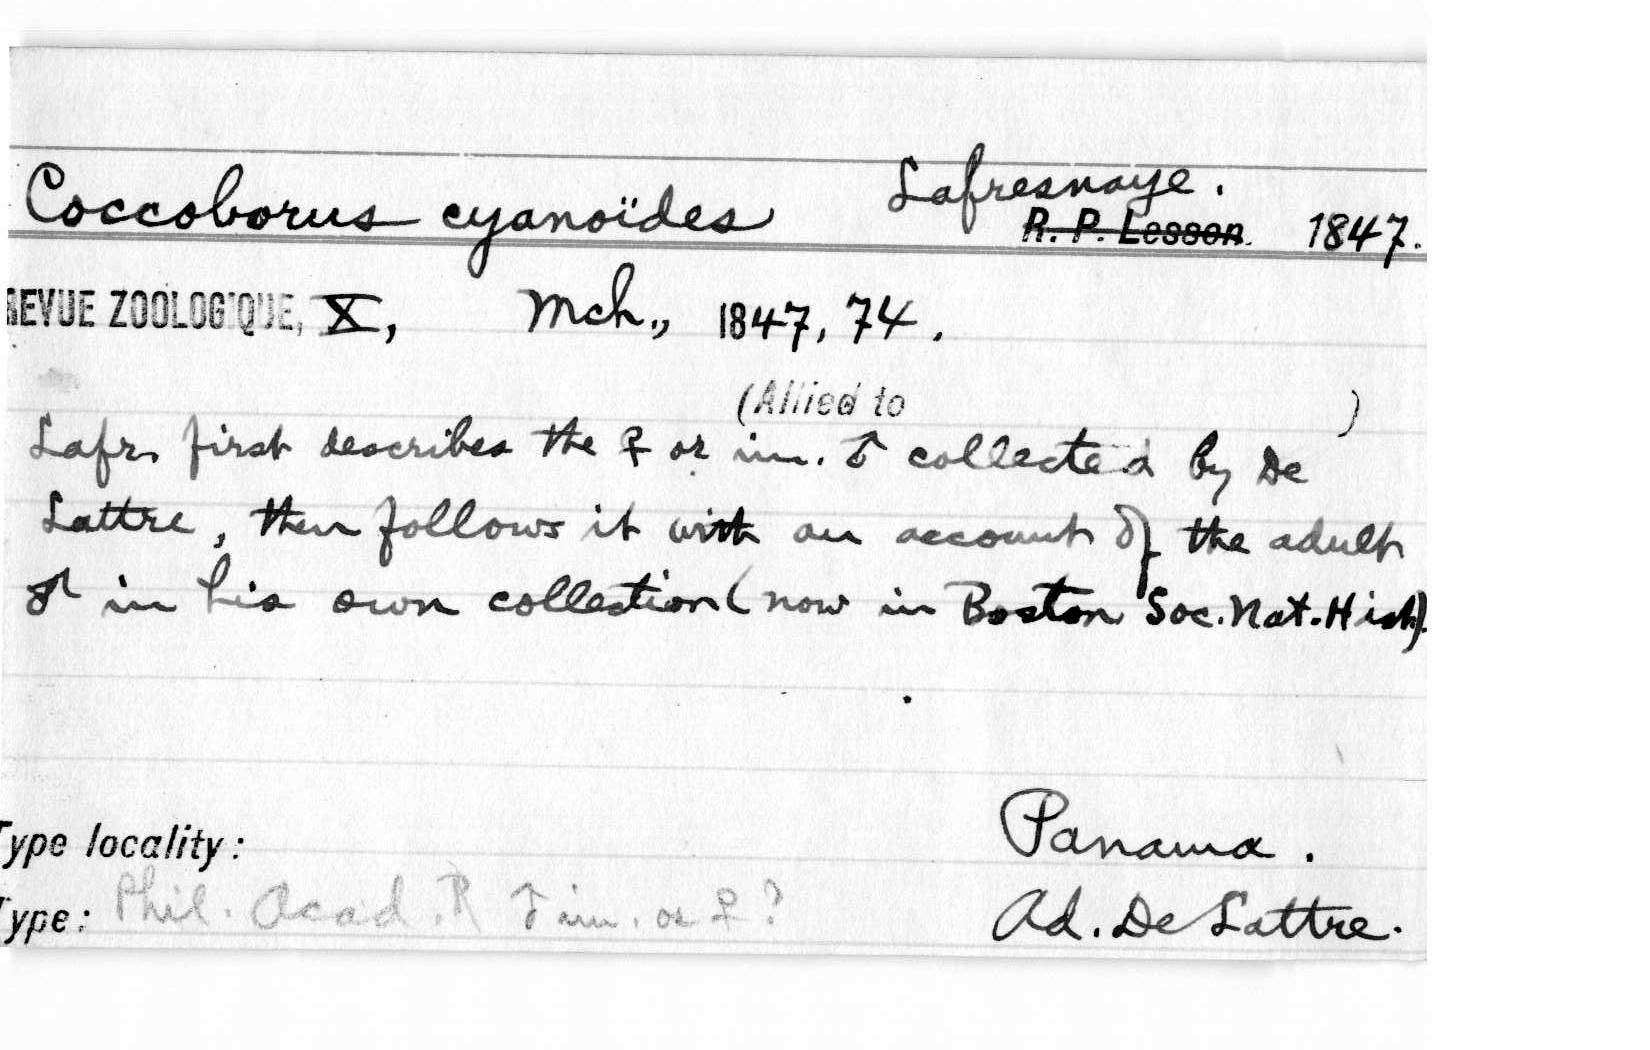 Lafresnaye.
Coccoborus cyanoïdes R. P. Lesson. 1847.
REVUE ZOOLOGIQUE, X, Mch., 1847, 74.
(Allied to )
Lafr. first describes the ♀ or im. ♂ collected by De
Lattre, then follows it with an account of the adult
♂ in his own collection (now in Boston Soc. Nat. Hist).
Type locality: Panama.
Type: Phil. Acad. ♂ im. or ♀? Ad. De Lattre.